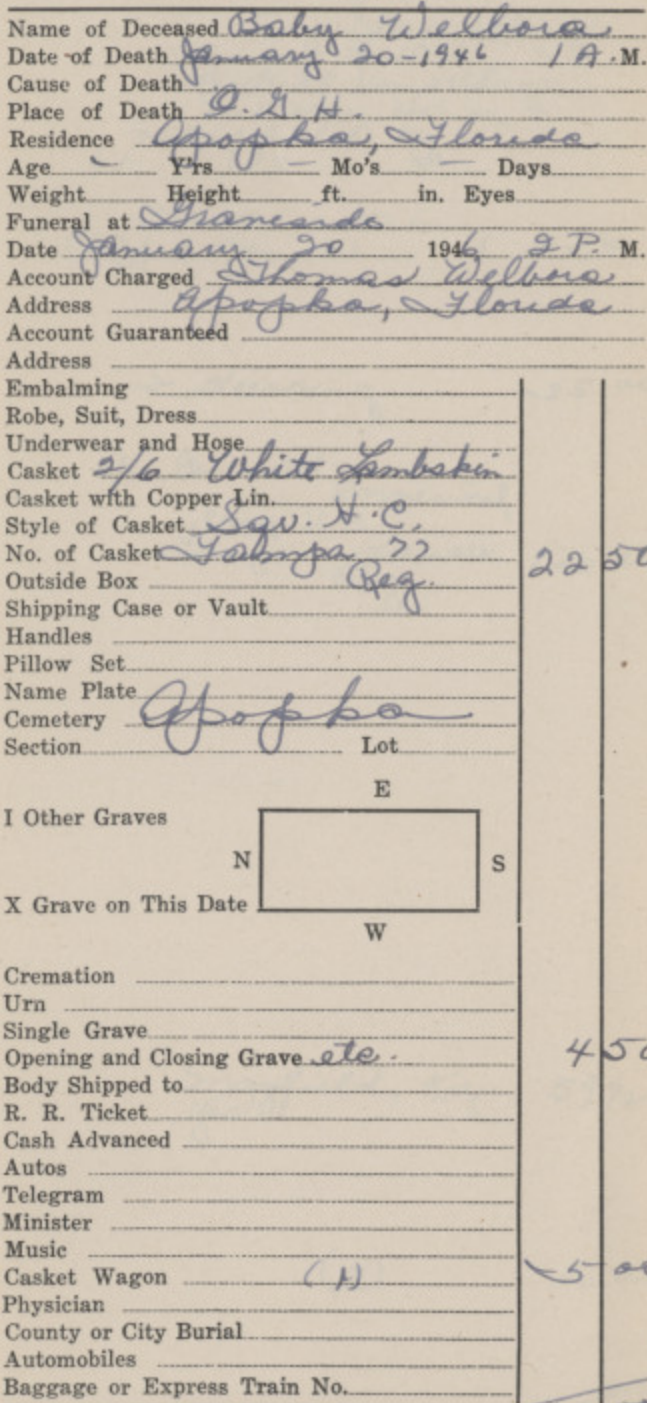 Name of Deceased Baby Welborn
Date of Death January 20-1946 1 A. M.
Cause of Death
Place of Death O. G. H.
Residence Apopka, Florida
Age - Y'rs - Mo's - Days
Weight Height ft. in. Eyes
Funeral at Graveside
Date January 20 1946 2 P. M.
Account Charged Thomas Welborn
Address Apopka, Florida
Account Guaranteed
Address
Embalming
Robe, Suit, Dress
Underwear and Hose
Casket 2/6 White Lambskin
Casket with Copper Lin.
Style of Casket Sqv. H.C.
No. of Casket Tampa 77 22 50
Outside Box Reg.
Shipping Case or Vault
Handles
Pillow Set
Name Plate
Cemetery Apopka
Section Lot
E
I Other Graves
N S
X Grave on This Date
W
Cremation
Urn
Single Grave
Opening and Closing Grave etc. 4 50
Body Shipped to
R. R. Ticket
Cash Advanced
Autos
Telegram
Minister
Music
Casket Wagon 5 00
Physician
County or City Burial
Automobiles
Baggage or Express Train No.